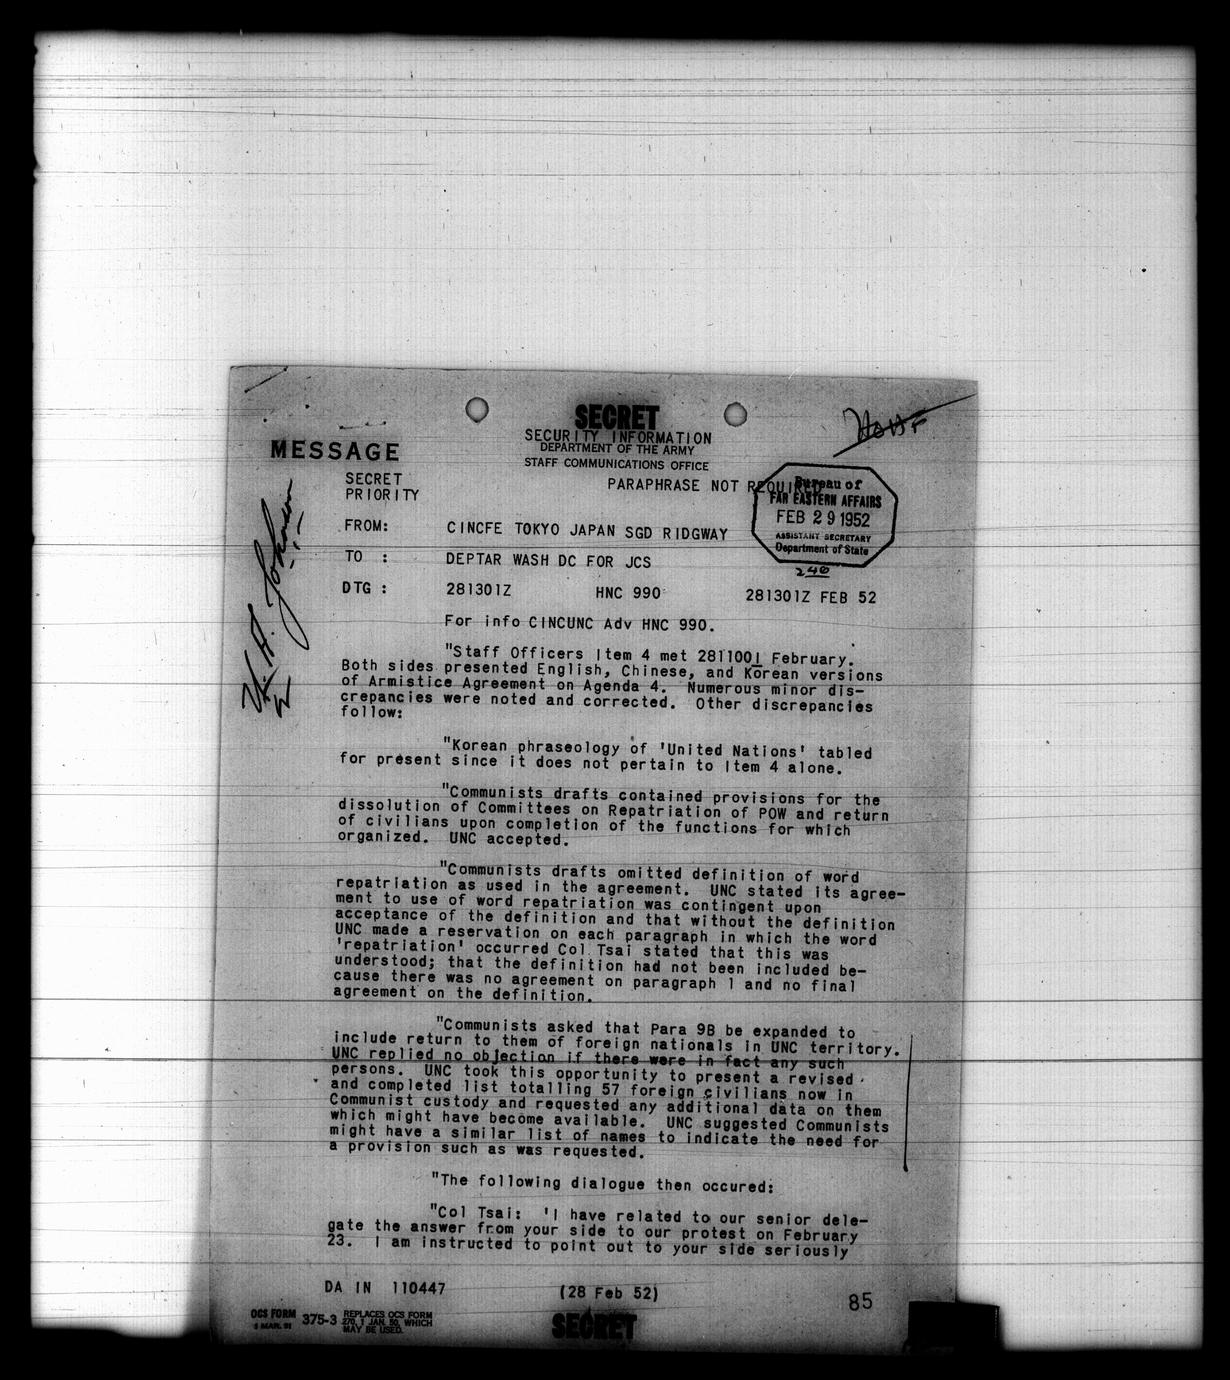 SECRET
SECURITY INFORMATION
DEPARTMENT OF THE ARMY
STAFF COMMUNICATIONS OFFICE
MESSAGE
SECRET
PRIORITY
PARAPHRASE NOT REQUIRED
Bureau of
FAR EASTERN AFFAIRS
FEB 29 1952
ASSISTANT SECRETARY
Department of State
240
FROM: CINCFE TOKYO JAPAN SGD RIDGWAY
TO : DEPTAR WASH DC FOR JCS
DTG : 281301Z HNC 990 281301Z FEB 52
For info CINCUNC Adv HNC 990.
"Staff Officers Item 4 met 281100I February.
Both sides presented English, Chinese, and Korean versions
of Armistice Agreement on Agenda 4. Numerous minor dis-
crepancies were noted and corrected. Other discrepancies
follow:
"Korean phraseology of 'United Nations' tabled
for present since it does not pertain to Item 4 alone.
"Communists drafts contained provisions for the
dissolution of Committees on Repatriation of POW and return
of civilians upon completion of the functions for which
organized. UNC accepted.
"Communists drafts omitted definition of word
repatriation as used in the agreement. UNC stated its agree-
ment to use of word repatriation was contingent upon
acceptance of the definition and that without the definition
UNC made a reservation on each paragraph in which the word
'repatriation' occurred Col Tsai stated that this was
understood; that the definition had not been included be-
cause there was no agreement on paragraph 1 and no final
agreement on the definition.
"Communists asked that Para 9B be expanded to
include return to them of foreign nationals in UNC territory.
UNC replied no objection if there were in fact any such
persons. UNC took this opportunity to present a revised
and completed list totalling 57 foreign civilians now in
Communist custody and requested any additional data on them
which might have become available. UNC suggested Communists
might have a similar list of names to indicate the need for
a provision such as was requested.
"The following dialogue then occured:
"Col Tsai: 'I have related to our senior dele-
gate the answer from your side to our protest on February
23. I am instructed to point out to your side seriously
DA IN 110447 (28 Feb 52)
85
OCS FORM
1 MAR. 51
375-3
REPLACES OCS FORM
270, 1 JAN. 50, WHICH
MAY BE USED.
SECRET
Johnson